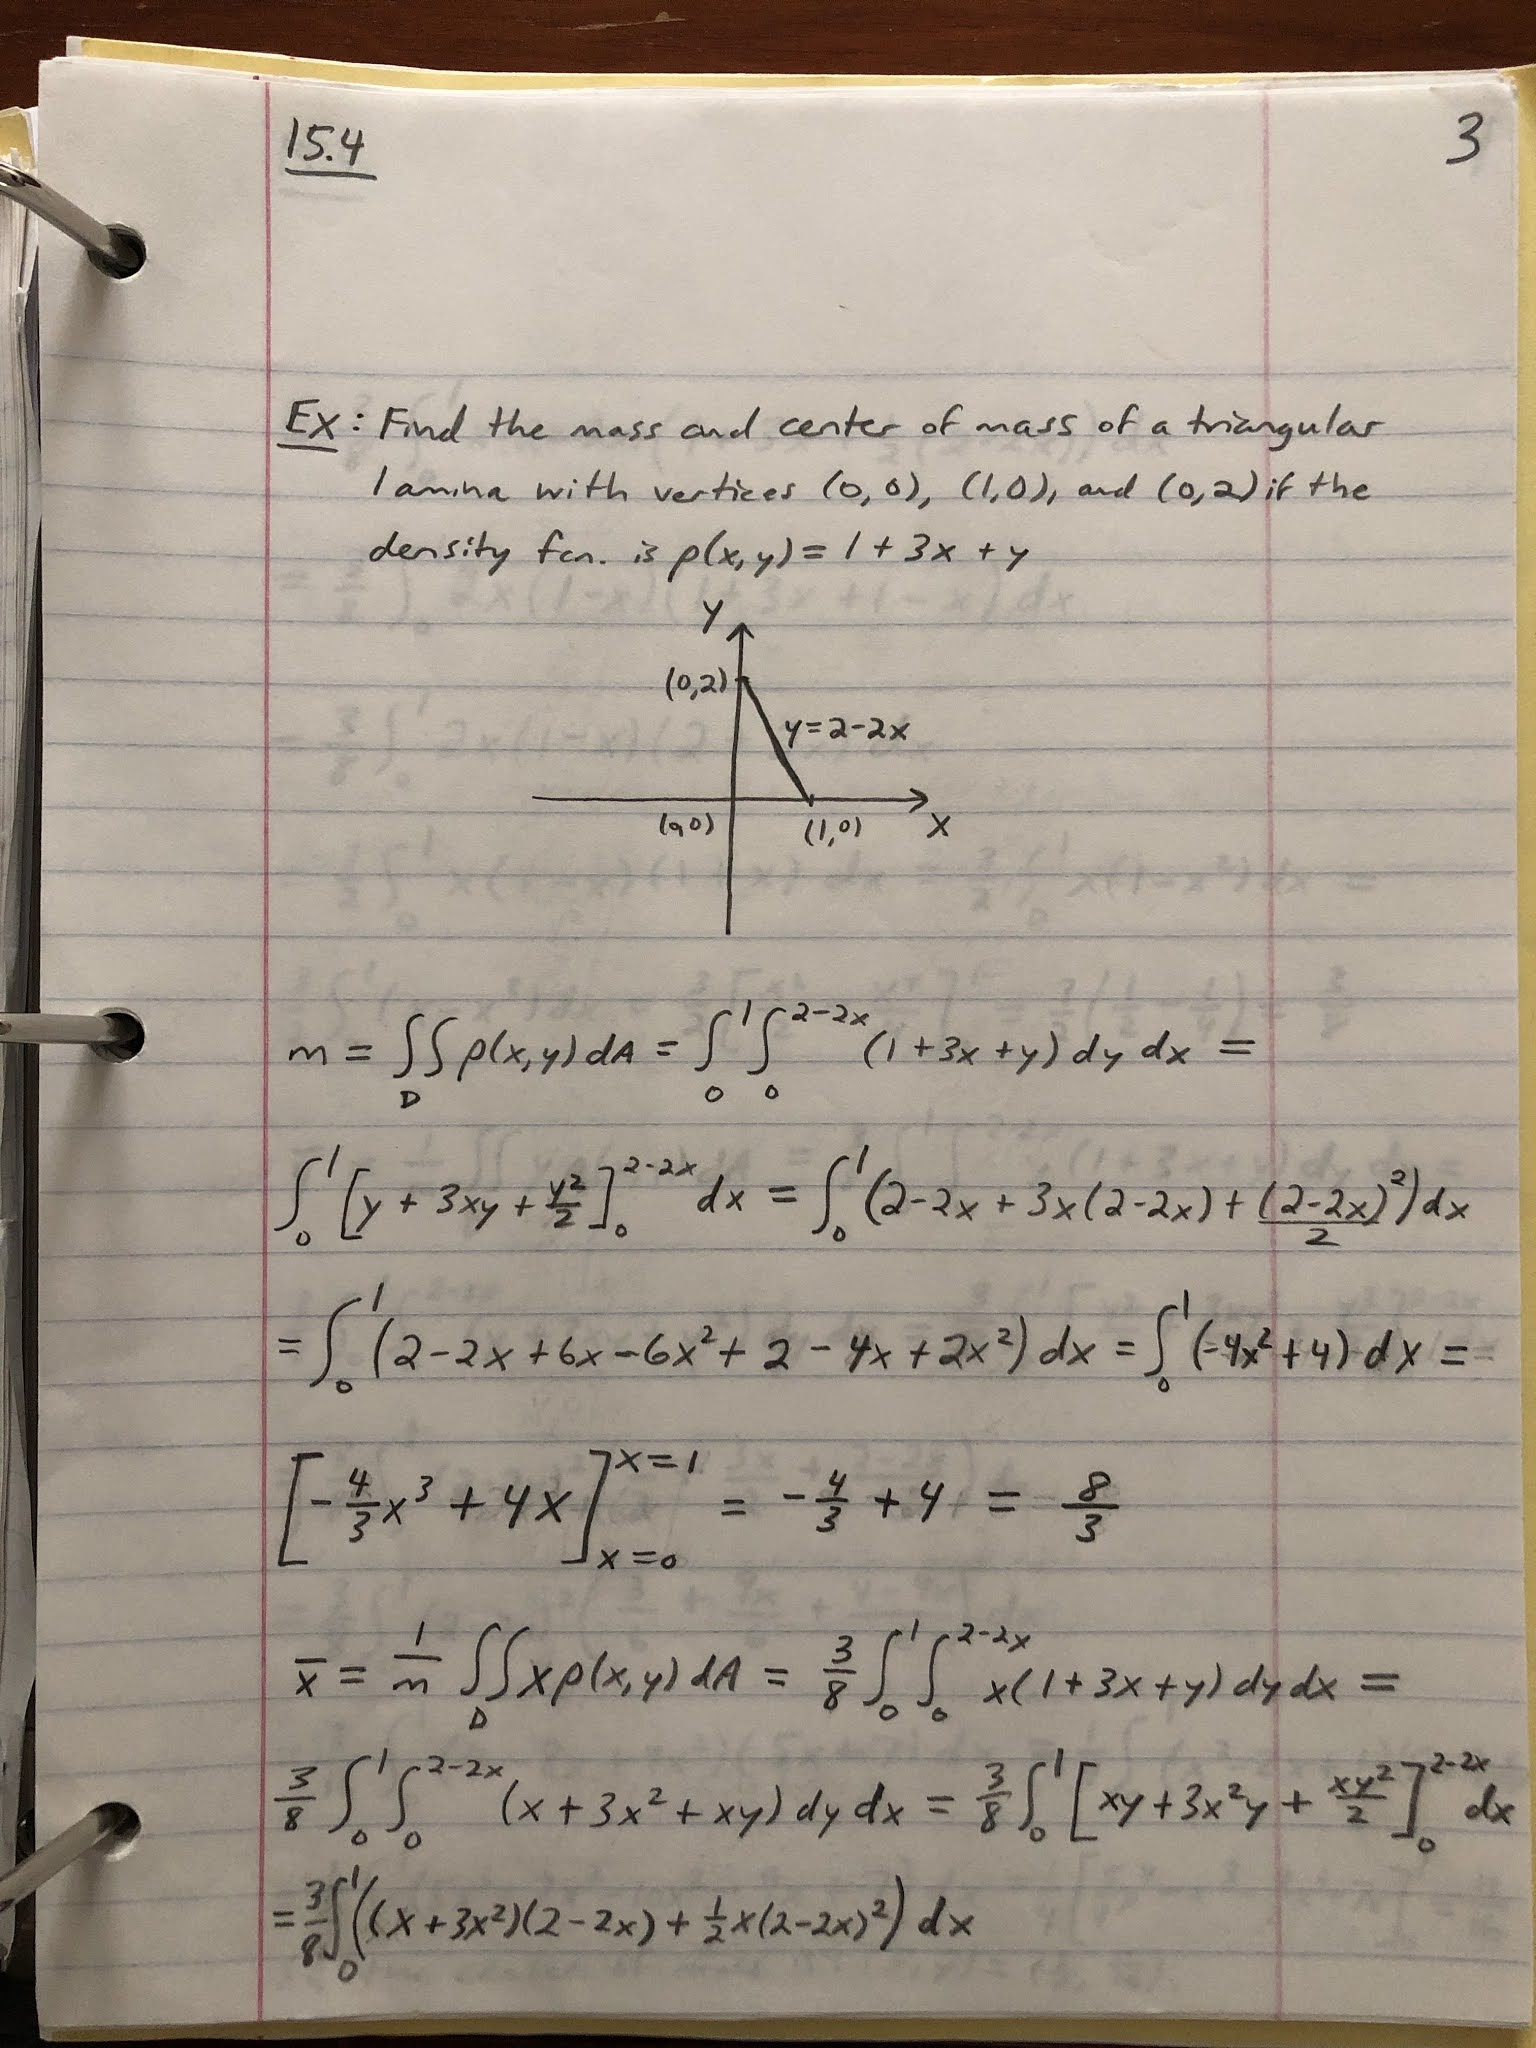 15.4
3
Ex: Find the mass and center of mass of a triangular
lamina with vertices (0,0), (1,0), and (0,2) if the
density fcn. is ρ(x,y) = 1 + 3x + y
y
(0,2)
y=2-2x
(0,0)
(1,0)
x
m = ∬_D ρ(x,y) dA = ∫_0^1 ∫_0^{2-2x} (1+3x+y) dy dx =
∫_0^1 [y + 3xy + y²/2]_0^{2-2x} dx = ∫_0^1 (2-2x + 3x(2-2x) + (2-2x)²/2) dx
= ∫_0^1 (2-2x+6x-6x²+2-4x+2x²) dx = ∫_0^1 (-4x²+4) dx =
[-4/3 x³ + 4x]_{x=0}^{x=1} = -4/3 + 4 = 8/3
x̄ = 1/m ∬_D xρ(x,y) dA = 3/8 ∫_0^1 ∫_0^{2-2x} x(1+3x+y) dy dx =
3/8 ∫_0^1 ∫_0^{2-2x} (x+3x²+xy) dy dx = 3/8 ∫_0^1 [xy+3x²y+xy²/2]_0^{2-2x} dx
= 3/8 ∫_0^1 ((x+3x²)(2-2x) + 1/2 x(2-2x)²) dx